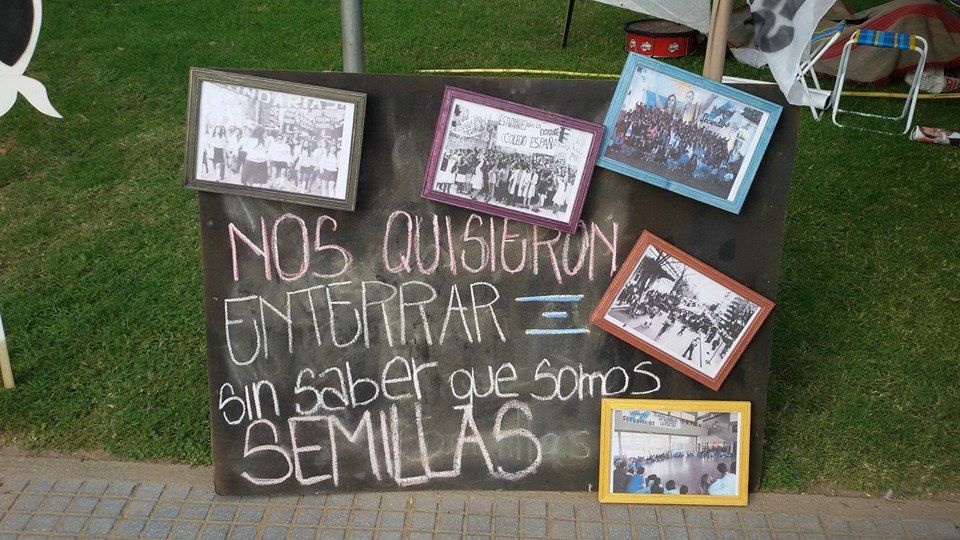 NOS QUISIERON
ENTERRAR
sin saber que somos
SEMILLAS
COLEGIO ESPAÑ